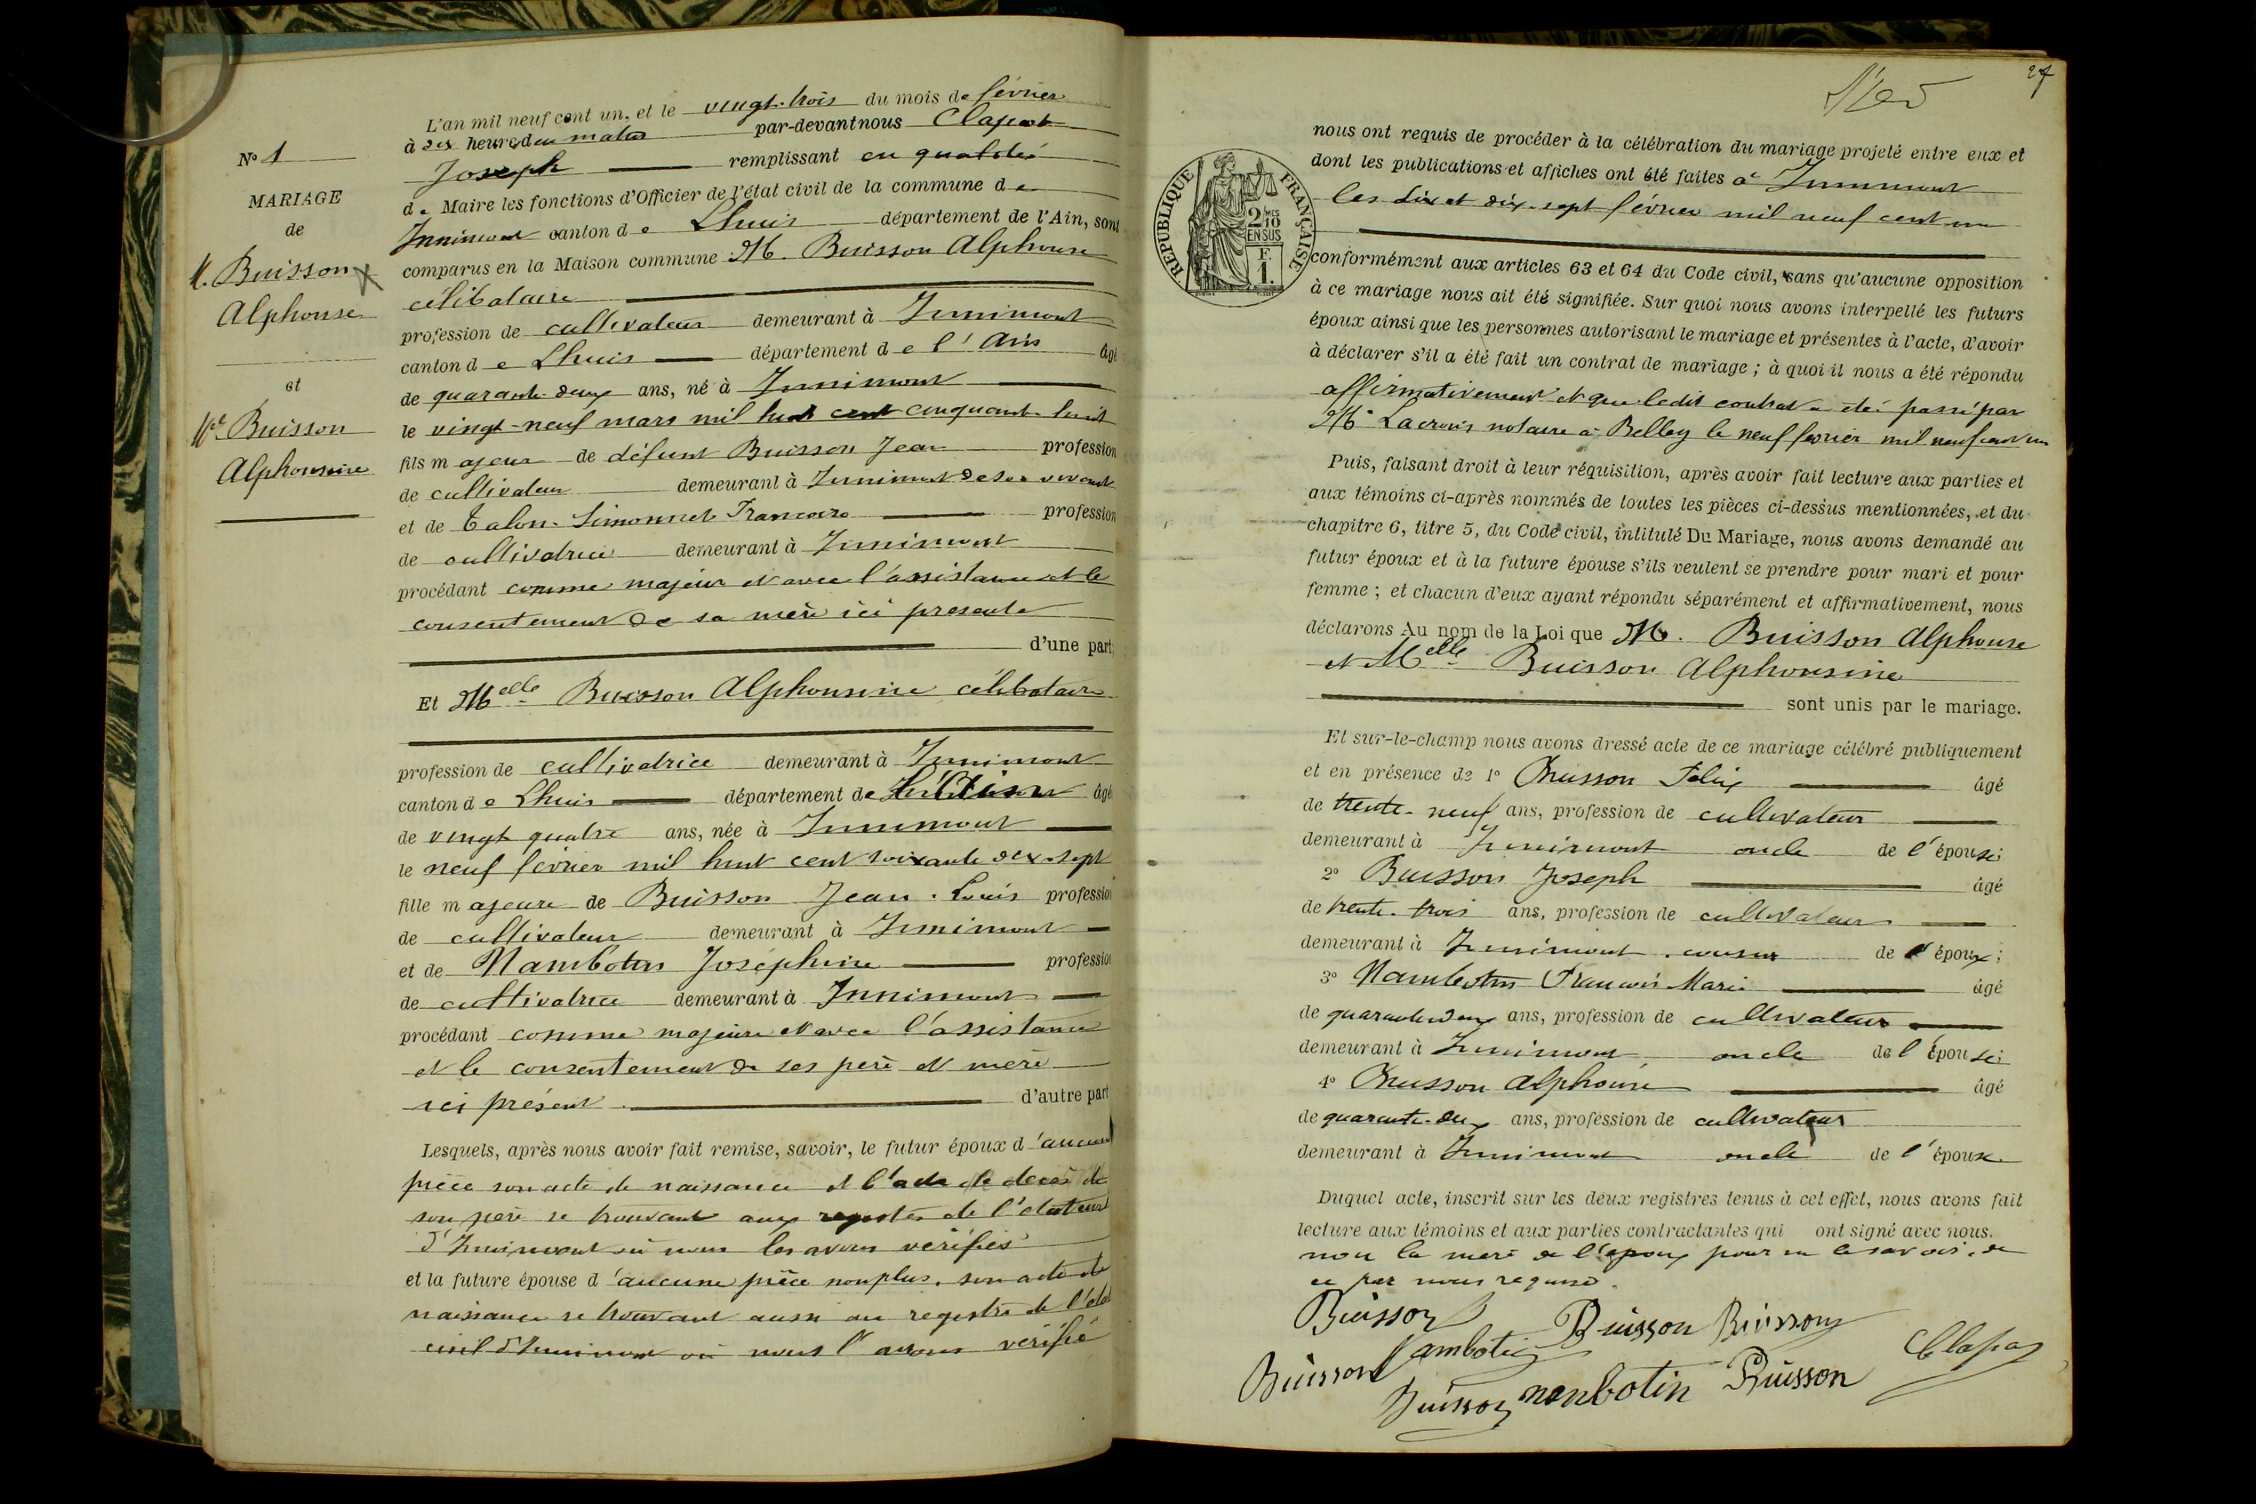 N° 1
MARIAGE
de
M. Buisson
Alphonse
et
Mlle Buisson
Alphonsine
L'an mil neuf cent un, et le vingt-trois du mois de février
à dix heures du matin par-devant nous Clapot
Joseph remplissant en qualité
de Maire les fonctions d'Officier de l'état civil de la commune de
Innimont canton de Lhuis département de l'Ain, sont
comparus en la Maison commune M. Buisson Alphonse
célibataire
profession de cultivateur demeurant à Innimont
canton de Lhuis département de l'Ain âgé
de quarante-deux ans, né à Innimont
le vingt-neuf mars mil huit cent cinquante-huit
fils majeur de défunt Buisson Jean profession
de cultivateur demeurant à Innimont de son vivant
et de Talon-Simonnet profession
de cultivatrice demeurant à Innimont
procédant comme majeur et avec l'assistance et le
consentement de sa mère ici présente
d'une part;
Et Melle Buisson Alphonsine célibataire
profession de cultivatrice demeurant à Innimont
canton de Lhuis département de l'Ain âgé
de vingt quatre ans, née à Innimont
le neuf février mil huit cent soixante dix-sept
fille majeure de Buisson Jean-Louis profession
de cultivateur demeurant à Innimont
et de Nambotin Joséphine profession
de cultivatrice demeurant à Innimont
procédant comme majeure et avec l'assistance
et le consentement de ses père et mère
ici présent d'autre part
Lesquels, après nous avoir fait remise, savoir, le futur époux d'aucune
pièce son acte de naissance et l'acte de décès de
son père se trouvant aux registres de l'état civil
d'Innimont où nous les avons vérifiés
et la future épouse d'aucune pièce non plus, son acte de
naissance se trouvant aussi au registre de l'état
civil d'Innimont où nous l'avons vérifié
27
nous ont requis de procéder à la célébration du mariage projeté entre eux et
dont les publications et affiches ont été faites à Innimont
les dix et dix-sept février mil neuf cent un
RÉPUBLIQUE FRANÇAISE
2/10 EN SUS
1 F.
conformément aux articles 63 et 64 du Code civil, sans qu'aucune opposition
à ce mariage nous ait été signifiée. Sur quoi nous avons interpellé les futurs
époux ainsi que les personnes autorisant le mariage et présentes à l'acte, d'avoir
à déclarer s'il a été fait un contrat de mariage ; à quoi il nous a été répondu
affirmativement et que ledit contrat a été passé par
Me Lacroix notaire à Belley le neuf février mil neuf cent un
Puis, faisant droit à leur réquisition, après avoir fait lecture aux parties et
aux témoins ci-après nommés de toutes les pièces ci-dessus mentionnées, et du
chapitre 6, titre 5, du Code civil, intitulé Du Mariage, nous avons demandé au
futur époux et à la future épouse s'ils veulent se prendre pour mari et pour
femme ; et chacun d'eux ayant répondu séparément et affirmativement, nous
déclarons Au nom de la Loi que M. Buisson Alphonse
et Melle Buisson Alphonsine
sont unis par le mariage.
Et sur-le-champ nous avons dressé acte de ce mariage célébré publiquement
et en présence de 1° Buisson Félix âgé
de trente-neuf ans, profession de cultivateur
demeurant à Innimont oncle de l'épouse;
2° Buisson Joseph âgé
de trente-trois ans, profession de cultivateur
demeurant à Innimont cousin de l'époux;
3° Nambotin François Marie âgé
de quarante deux ans, profession de cultivateur
demeurant à Innimont oncle de l'épouse;
4° Buisson âgé
de quarante-deux ans, profession de cultivateur
demeurant à Innimont oncle de l'épouse
Duquel acte, inscrit sur les deux registres tenus à cet effet, nous avons fait
lecture aux témoins et aux parties contractantes qui ont signé avec nous.
non la mère de l'époux pour ne le savoir, de
ce par nous requise.
Buisson
Nambotin Buisson Buisson
Clapot
Buisson
Buisson nanbotin Buisson